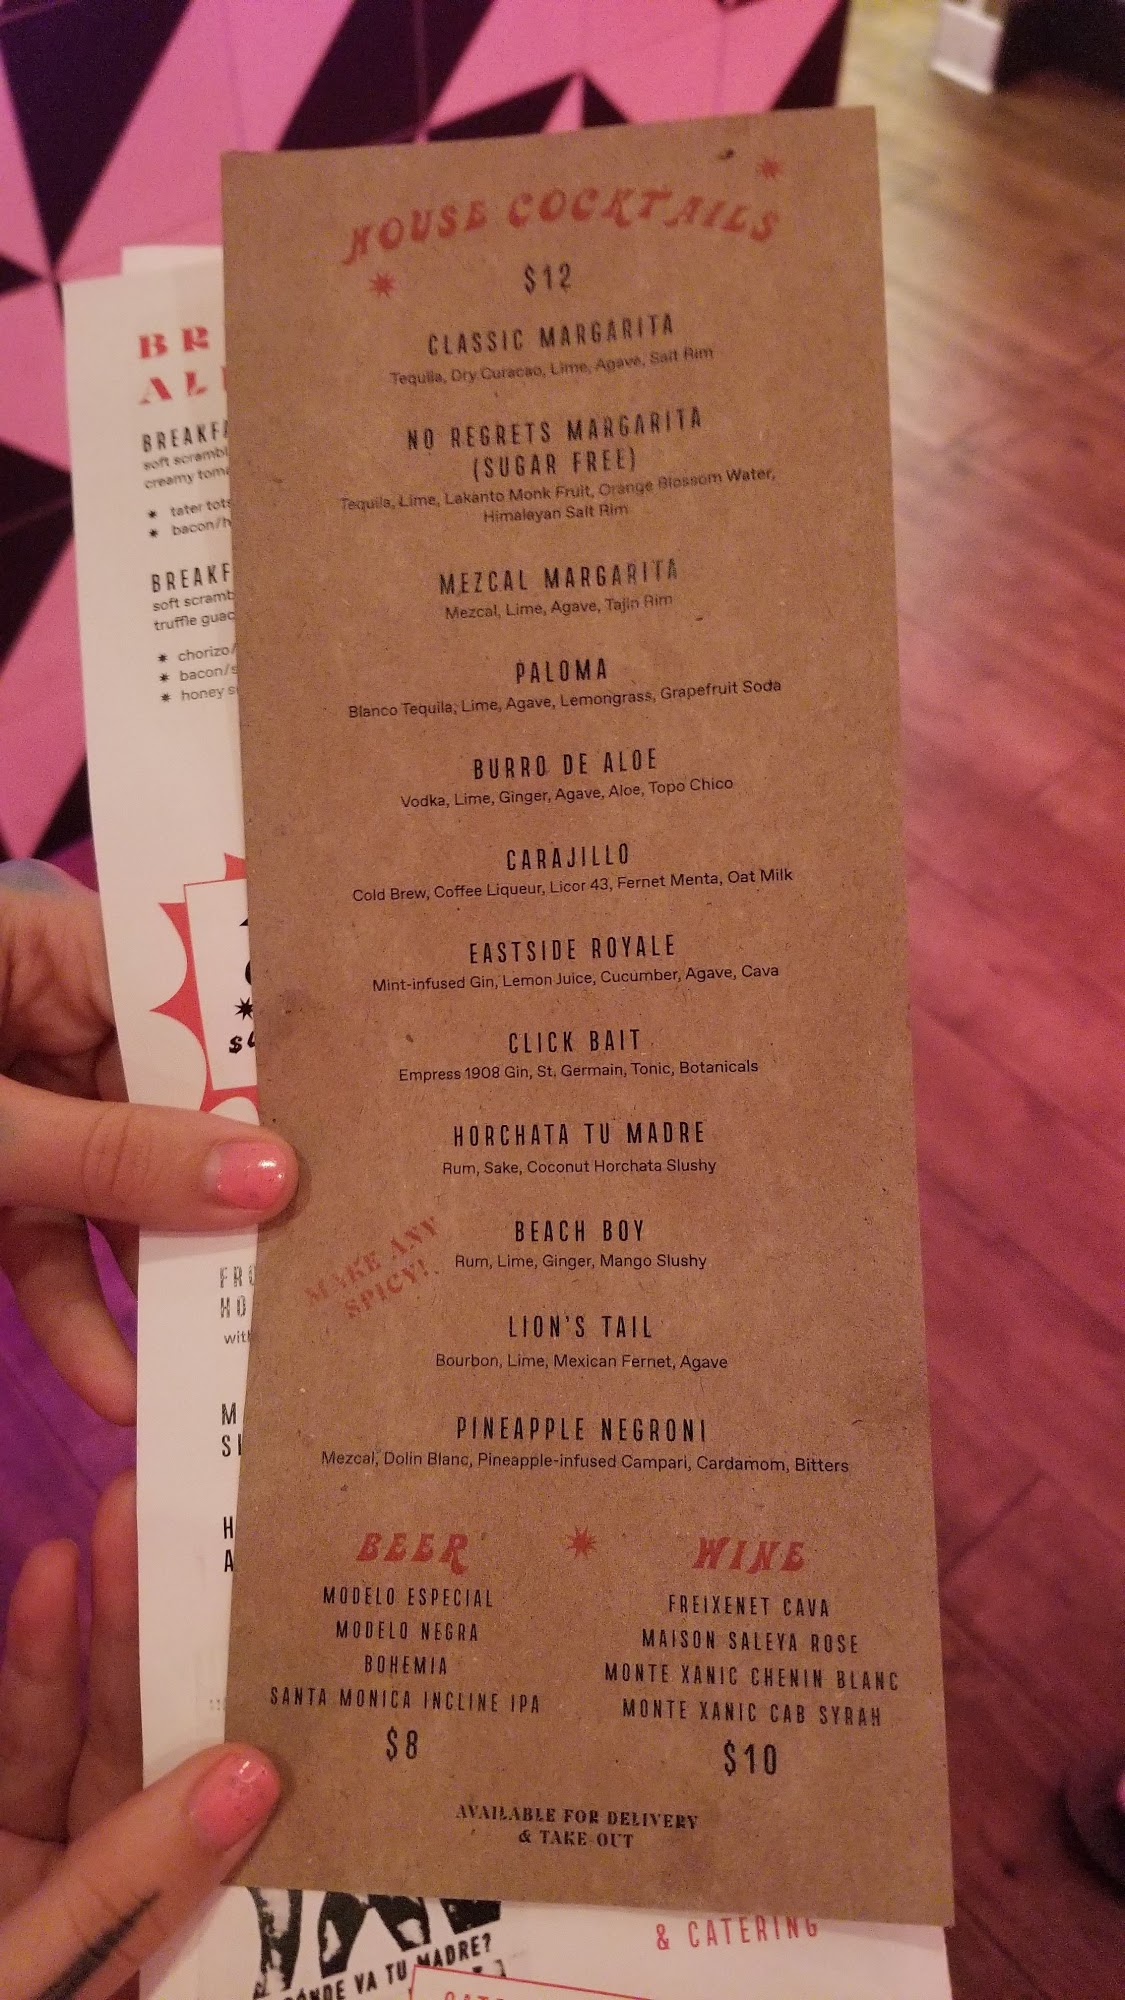 HOUSE COCKTAILS
$12
CLASSIC MARGARITA
Tequila, Dry Curacao, Lime, Agave, Salt Rim
NO REGRETS MARGARITA
(SUGAR FREE)
Tequila, Lime, Lakanto Monk Fruit, Orange Blossom Water,
Himalayan Salt Rim
MEZCAL MARGARITA
Mezcal, Lime, Agave, Tajin Rim
PALOMA
Blanco Tequila, Lime, Agave, Lemongrass, Grapefruit Soda
BURRO DE ALOE
Vodka, Lime, Ginger, Agave, Aloe, Topo Chico
CARAJILLO
Cold Brew, Coffee Liqueur, Licor 43, Fernet Menta, Oat Milk
EASTSIDE ROYALE
Mint-infused Gin, Lemon Juice, Cucumber, Agave, Cava
CLICK BAIT
Empress 1908 Gin, St. Germain, Tonic, Botanicals
HORCHATA TU MADRE
Rum, Sake, Coconut Horchata Slushy
MAKE ANY
SPICY!
BEACH BOY
Rum, Lime, Ginger, Mango Slushy
LION'S TAIL
Bourbon, Lime, Mexican Fernet, Agave
PINEAPPLE NEGRONI
Mezcal, Dolin Blanc, Pineapple-infused Campari, Cardamom, Bitters
BEER
MODELO ESPECIAL
MODELO NEGRA
BOHEMIA
SANTA MONICA INCLINE IPA
$8
WINE
FREIXENET CAVA
MAISON SALEYA ROSE
MONTE XANIC CHENIN BLANC
MONTE XANIC CAB SYRAH
$10
AVAILABLE FOR DELIVERY
& TAKE-OUT
BR
AL
BREAKFA
soft scrambl
creamy toma
tater tots
bacon/h
BREAKF
soft scramb
truffle guac
chorizo/
bacon/s
honey s
FRO
HO
with
M
H
A
& CATERING
VA TU MADRE?